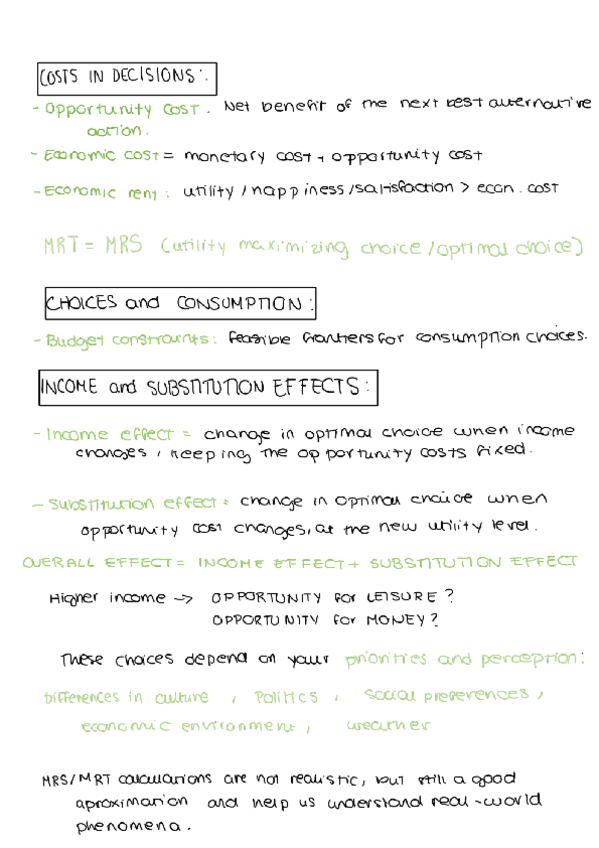 COSTS IN DECISIONS:.
- Opportunity cost. Net benefit of the next best alternative
action.
- Economic cost = monetary cost + opportunity cost
- Economic rent: utility / happiness / satisfaction > econ. cost
MRT = MRS (utility maximizing choice / optimal choice)
CHOICES and CONSUMPTION:
- Budget constraints: feasible frontiers for consumption choices.
INCOME and SUBSTITUTION EFFECTS:
- Income effect = change in optimal choice when income
changes, keeping the opportunity costs fixed.
- Substitution effect = change in optimal choice when
opportunity cost changes, at the new utility level.
OVERALL EFFECT = INCOME EFFECT + SUBSTITUTION EFFECT
Higher income -> OPPORTUNITY for LEISURE?
OPPORTUNITY for MONEY?
These choices depend on your priorities and perception:
Differences in culture, Politics, social preferences,
economic environment, weather
MRS/MRT calculations are not realistic, but still a good
aproximation and help us understand real-world
phenomena.